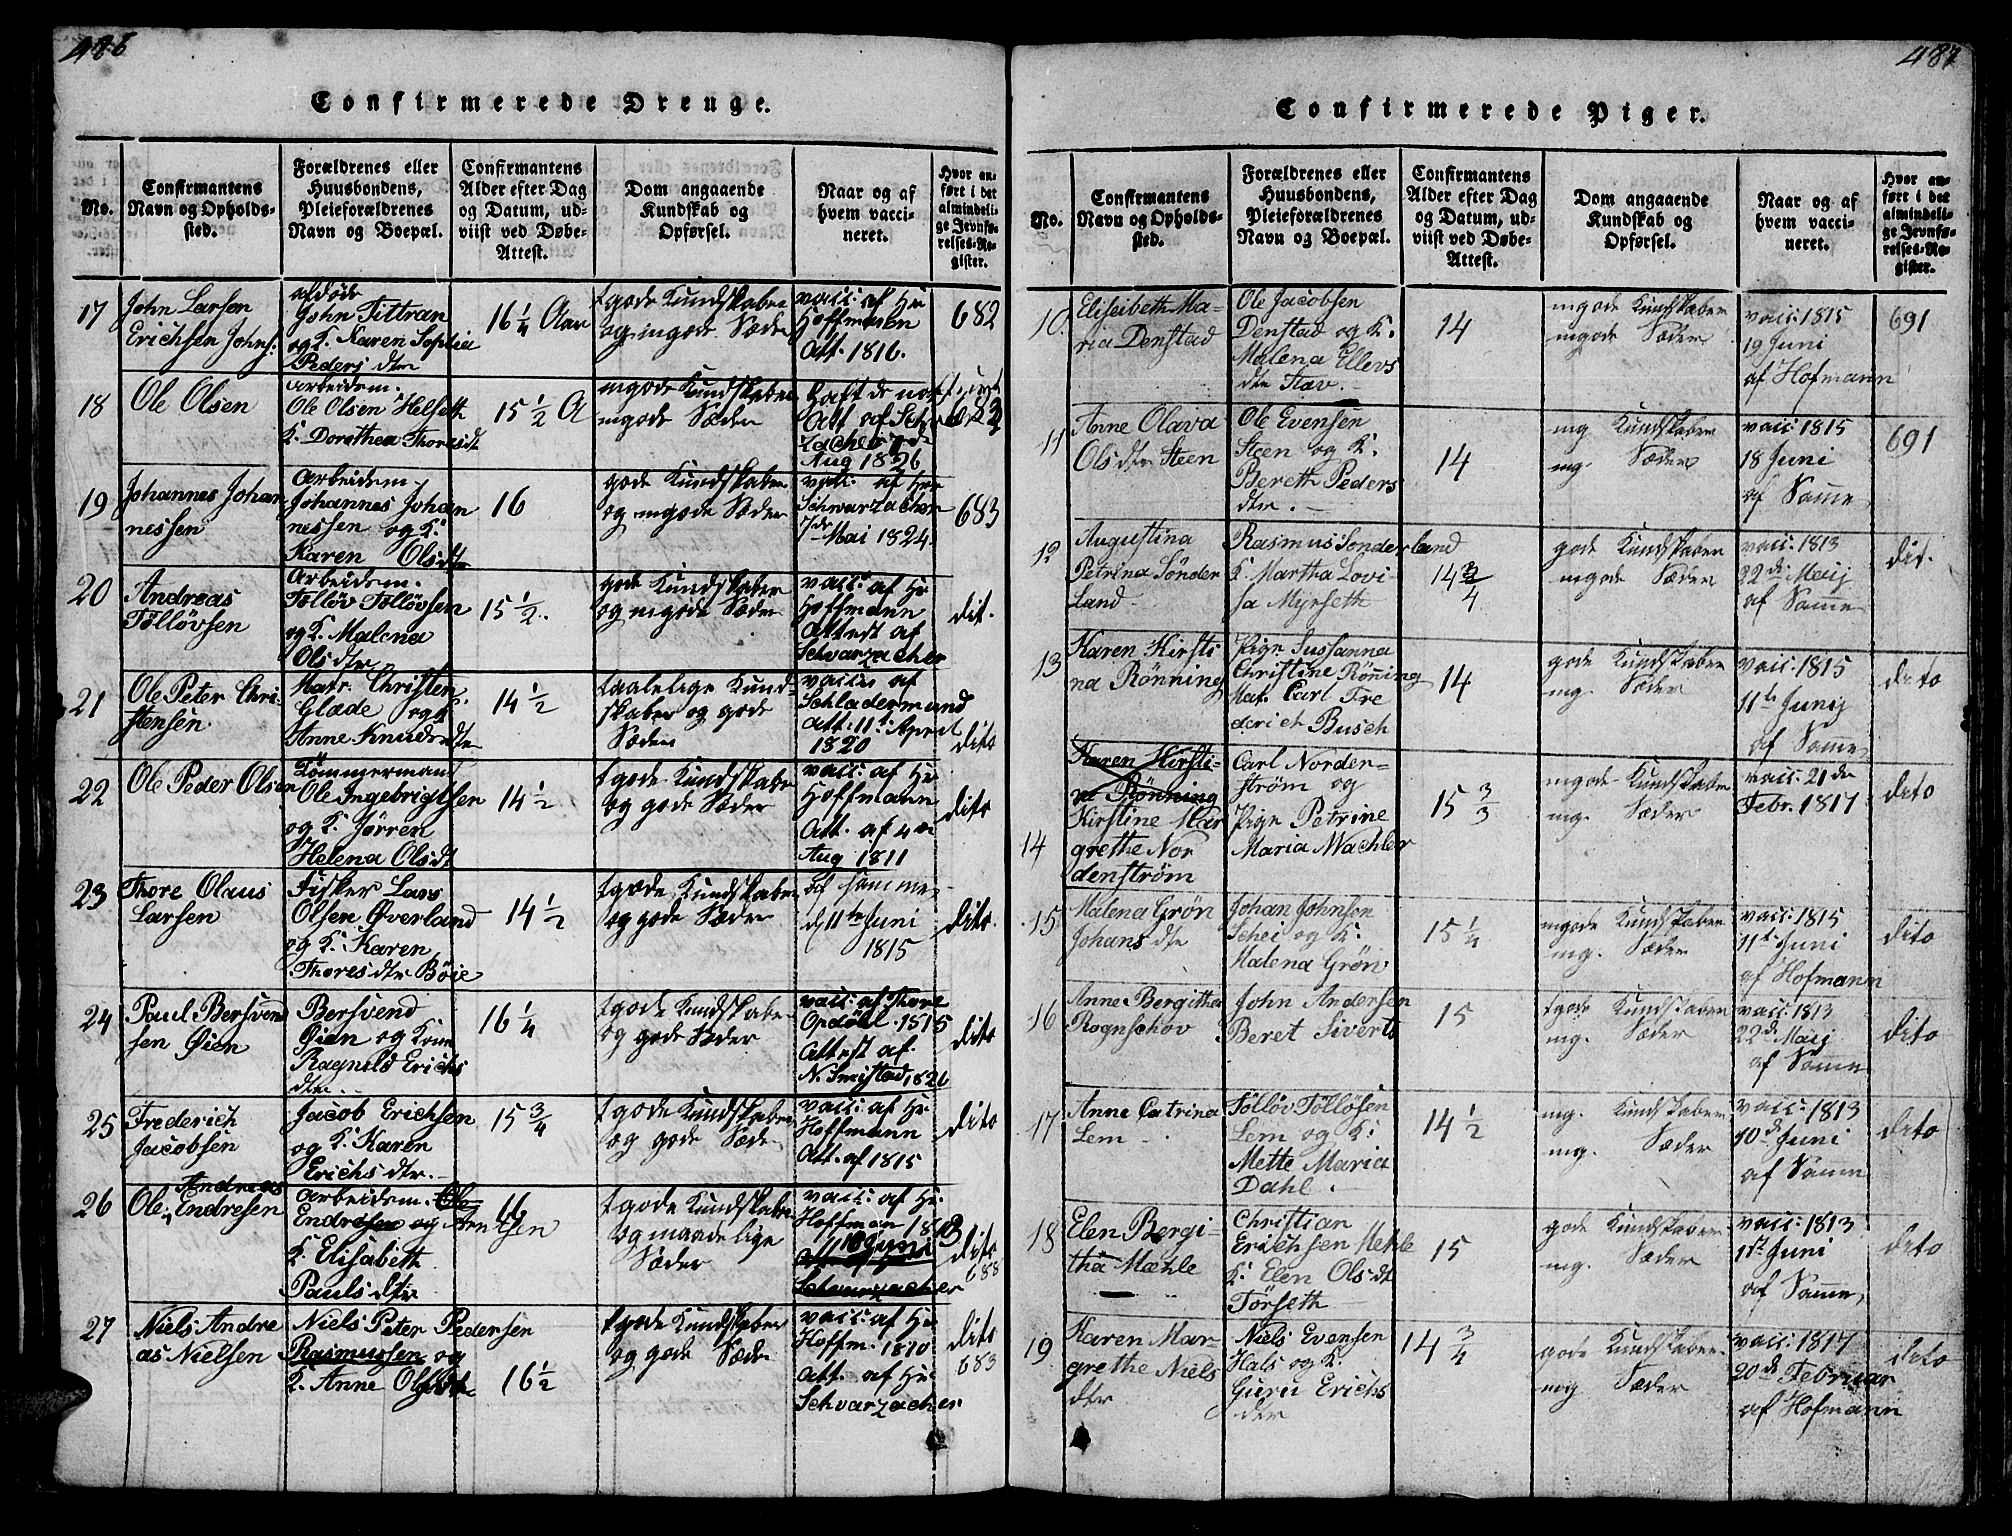 486
Confirmerede Drenge.
No.
Confirmantens
Navn og Opholds-
sted.
Forældrenes eller
Huusbondens,
Pleieforældrenes
Navn og Boepæl.
Confirmantens
Alder efter Dag
og Datum, ud-
viist ved Døbe-
Attest.
Dom angaaende
Kundskab og
Opførsel.
Naar og af
hvem vacci-
neret.
Hvor an-
ført i det
almindeli-
ge Jevnfø-
relses-Re-
gister.
17
John Larsen
Erichsen Johns:
afdøde
John Tittran
og K. Karen Sophia
Peders dtr
16 1/4 Aar
tgode Kundskaber
og mgode Sæder
vacc: af Hr
Hoffmann
Att. 1816.
682
18
Ole Olsen
Arbeidem.
Ole Olsen Helseth
K. Dorothea Thoresdt
15 1/2 A
mgode Kundskaber
mgode Sæder
Att af
Aug 1826
19
Johannes Johan
nessen
Arbeidem.
Johannes Johan
nessen og K.
Karen Olsdtr
16
gode Kundskaber
og mgode Sæder
vacc: af Hr
Schwarzacher
7de Mai 1824.
683
20
Andreas
Tølløvsen
Arbeidem.
Tølløv Tølløvsen
og K. Malena
Olsdtr
15 1/2.
gode Kundskaber
og mgode Sæder
vacc: af Hr
Hoffmann
Attest af
Schvarzacher
dit.
21
Ole Peter Chri-
stensen
Matr: Christen
Glæde og K.
Anne Knudsdtr
14 1/2
taalelige Kund-
skaber og gode
Sæder
vacci af
Schladermund
att. 11t. April
1820
dito
22
Ole Peder Olsen
Tømmermand
Ole Ingebrigtsen
og K. Jørren
Helena Olsdt
14 1/2
tgode Kundskaber
og gode Sæder
vacc: af Hr
Hoffmann
Att. af 4de
Aug 1811
dito
23
Thore Olaus
Larsen
Fisker Lars
Olsen Øverland
og K. Karen
Thoresdtr Böie
14 1/2
tgode Kundskaber
og gode Sæder
af samme
d 11te Juni
1815
dito.
24
Paul Bersvend
sen Øien
Bersvend
Øien og Kone
Ragnild Erichs
dtr.
16 1/4
tgode Kundskaber
og gode Sæder
vacc: af Thore
Opdøhl. 1815
Attest af
N. Smistad 1826
dito
25
Frederich
Jacobsen
Jacob Erichsen
og K. Karen
Erichsdtr.
15 3/4
tgode Kundskaber
og gode Sæde
vacc: af Hr
Hoffmann
Att. af 1815
dito
26
Andreas
Ole Endresen
Arbeidem. Ole
Endresen og Arntsen
K. Elisabeth
Paulsdtr
16
tgode Kundskaber
og maadelige
Sæder
vacc. af Hr.
Hoffman 1813
10 Juni
Schvarzacher
dito
688
27
Niels Andre
as Nielsen
Niels Peter Pedersen
Rasmussen og
K. Anne Olsdtr
16 1/2
tgode Kundskaber
og gode Sæder
vacc: af Hr
Hoffm. 1810
Att. af Hr
Schvarzacher
dito
683
487
Confirmerede Piger.
No.
Confirmantens
Navn og Opholds-
sted.
Forældrenes eller
Huusbondens,
Pleieforældrenes
Navn og Boepæl.
Confirmantens
Alder efter Dag
og Datum, ud-
viist ved Døbe-
Attest.
Dom angaaende
Kundskab og
Opførsel.
Naar og af
hvem vacci-
neret.
Hvor an-
ført i det
almindeli-
ge Jevnfø-
relses-Re-
gister.
10.
Eliseibeth Ma-
ria Denstad
Ole Jacobsen
Denstad og K.
Malena Ellevs
dtr Stav.
14
mgode Kundskaber
mgode Sæder
vacc: 1815
19 Juni
af Hofmann
691
11
Anne Olava
Olsdtr Steen
Ole Evensen
Steen og K.
Bereth Peders
dtr.
14
mg Kundskaber
mg. Sæder
vacc: 1815
18 Juni
af Samme
691
12
Augustina
Petrina Sønder
Land
Rasmus Sonderland
K. Martha Lovi-
sa Myrseth
14 3/4
gode Kundskaber
mgode Sæder
vacc: 1813
22de Maij
af Samme
dit.
13
Karen Kirsti
na Rønning
Pige Sussanna
Christine Rønning
Mat. Carl Fre
derich Busch
14
gode Kundskaber
mg. Sæder
vacc: 1815
11te Junij
af Samme
dito
14
Karen Kirsti-
na Rønning
Kirstine Mar
grethe Nor
denstrøm
Carl Norden-
strøm og
Pige Petrine
Maria Wachler
15 3/3
mgode Kundskaber
mg. Sæder
vacc: 21de
Febr. 1817
dito
15
Malena Grøn
Johans dtr
Johan Johnsen
Schei og K.
Malena Grøn
15 1/4
mgode Kundskaber
mg. Sæder
vacc: 1815
11t Juni
af Hofmann
dito
16
Anne Bergitha
Rognschov
John Andersen
Beret Siverts
15
tgode Kundskaber
mg. Sæder
vacc: 1813
22de Maij
af Samme
dito
17
Anne Catrina
Lem
Tölløv Tölløfsen
Lem og K.
Mette Maria
Dahl.
14 1/2
mg. Kundskaber
mg. Sæder
vacc: 1813
10d Juni
af Samme
dito
18
Elen Bergi-
tha Mæhle
Christian
Erichsen Mehle
K. Elen Olsdt
Tørseth
15
gode Kundskaber
mg. Sæder
vacc: 1813
1st Juni
af Samme,
dito
19
Karen Mar-
grethe Niels
dtr
Niels Evensen
Hals og K.
Guru Erichs
der
14 3/4
gode Kundskaber
mg Sæder
vacc: 1817
20de Februar
af Hofmann
dito